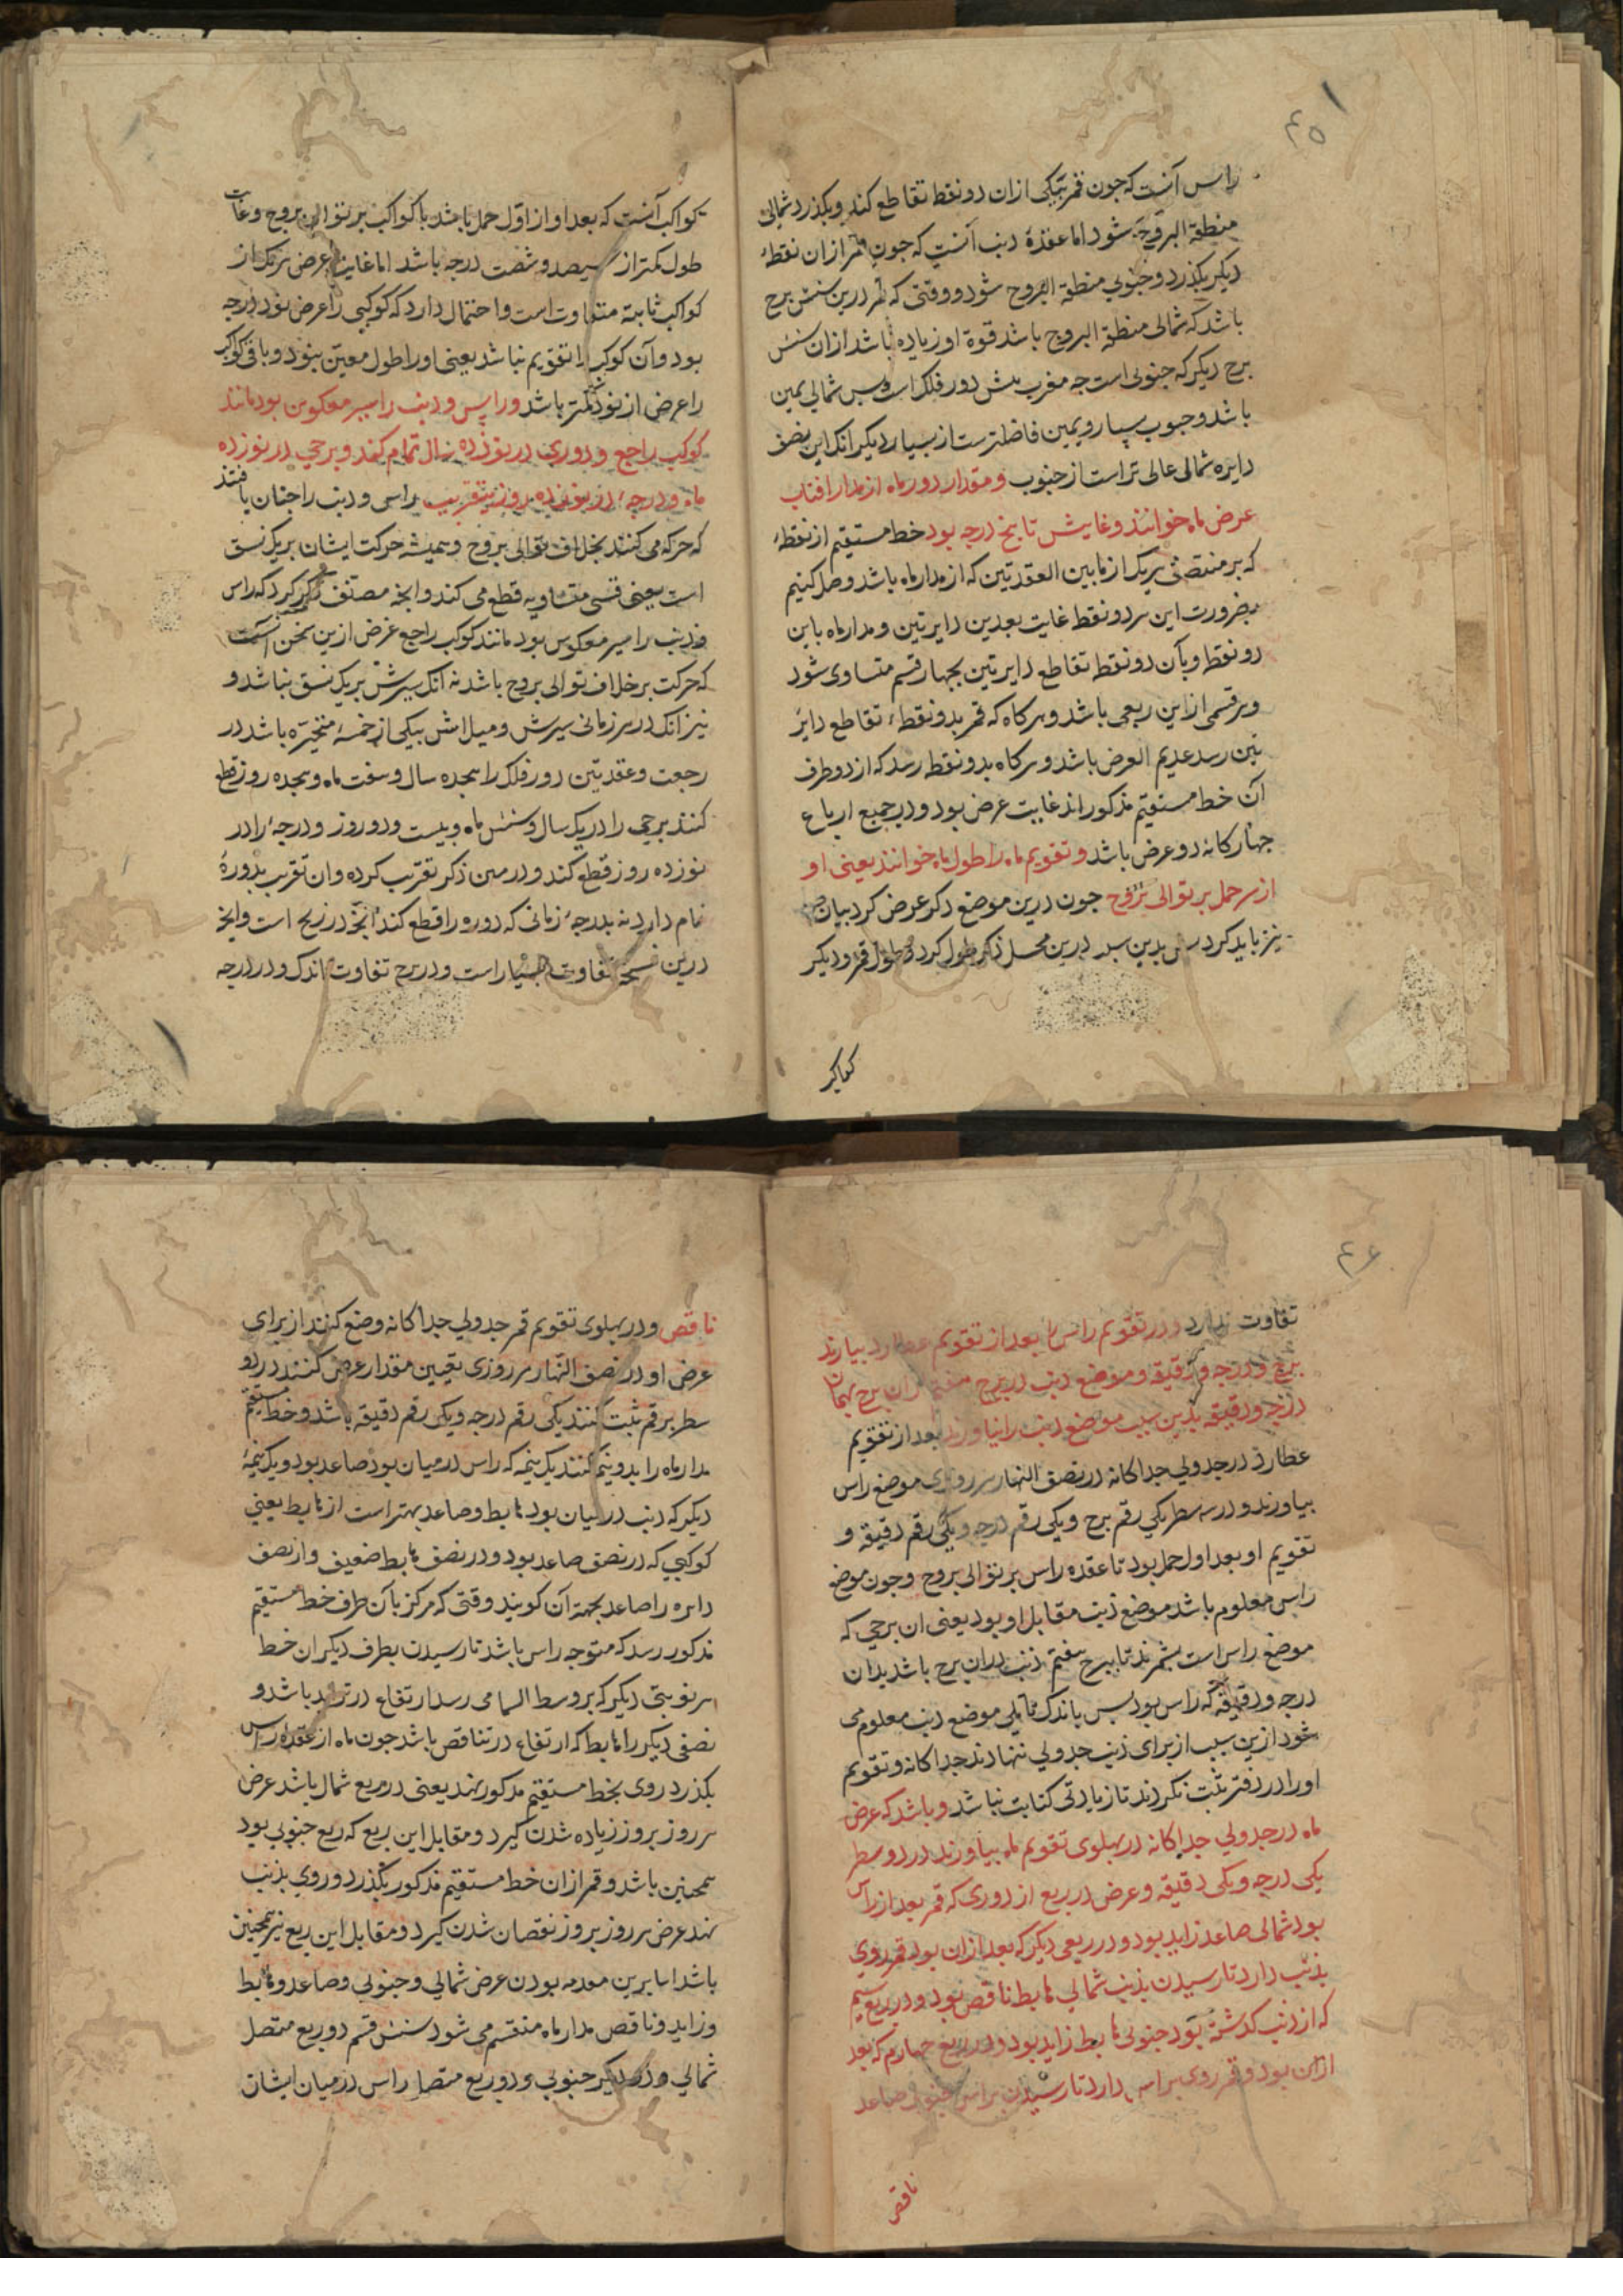 ۴۵
راس آنست که جون قمر بیکی ازان دو نقطه تقاطع کند و بکذرد شمالی
منطقة البروج شود اما عقدهٔ ذنب آنست که جون قمر ازان نقطهٔ
دیکر بکذرد و جنوبی منطقة البروج شود و وقتی که قمر درین شش برج
باشد که شمالی منطقة البروج باشد قوة او زیاده باشد ازان شش
برج دیکر که جنوبی است جه مغرب پیش دور فلک است پس شمالی یمین
باشد و جنوب یسار و یمین فاضلترست از یسار دیکر انک این نصف
دایره شمالی عالی تر است از جنوب و مقدار دور ماه از مدار افتاب
عرض ماه خوانند و غایتش تا پنج درجه بود خط مستقیم از نقطهٔ
که بر منتصف هر یک از مابین العقدتین که از مدار ماه باشد وصل کنیم
بضرورت این هر دو نقطه غایت بعدین دایرتین و مدار ماه باین
دو نقطه و بآن دو نقطه تقاطع دایرتین بجهار قسم متساوی شود
و هر قسمی ازاین ربعی باشد و هرکاه که قمر بدو نقطهٔ تقاطع دایر
تین رسد عدیم العرض باشد و هرکاه بدو نقطه رسد که از دو طرف
آن خط مستقیم مذکوراند غایت عرض بود و در جمیع ارباع
جهارکانه ذو عرض باشد و تقویم ماه را طول ماه خوانند یعنی او
از سر حمل بر توالی بروج جون درین موضع ذکر عرض کرد بیان
نیز باید کرد بدین سبب درین محل ذکر طول کرد و طول قمر و دیکر
کواکب
کواکب آنست که بعد او از اول حمل باشد با کواکب بر توالی بروج و غایت
طول کمتر از سیصد و شصت درجه باشد اما غایت عرض هر یک از
کواکب ثابته متفاوت است و احتمال دارد که کوکبی را عرض نود درجه
بود و آن کوکب را تقویم نباشد یعنی او را طول معین نبود و باقی کواکب
را عرض از نود کمتر باشد و راس و ذنب را سیر معکوس بود مانند
کوکب راجع و دوری در نوزده سال تمام کند و برجی در نوزده
ماه و درجهٔ در نوزده روز بتقریب راس و ذنب را جنان یافتند
که حرکه می کنند بخلاف توالی بروج و همیشه حرکت ایشان بر یک نسق
است یعنی قسی متساویه قطع می کند و انجه مصنف ذکر کرد که راس
و ذنب را سیر معکوس بود مانند کوکب راجع غرض ازین سخن آنست
که حرکت بر خلاف توالی بروج باشد نه آنک سیرش بر یک نسق نباشد و
نیز انک در هر زمانی سیرش و میل اش بیکی از خمسهٔ متحیره باشد در
رجعت و عقدتین دور فلک را بهجده سال و هفت ماه و هجده روز قطع
کنند برجی را در یک سال و شش ماه و بیست و دو روز و درجهٔ را در
نوزده روز قطع کند و در متن ذکر تقریب کرده و ان تقریب بدورهٔ
تمام دارد نه بدرجهٔ زمانی که دوره را قطع کند انجه در زیج است و انجه
درین نسخه تفاوت بسیار است و در برج تفاوت اندک و در درجه
۴۶
تفاوت ندارد و در تقویم راس را بعد از تقویم عطارد بیارند
برج و درجه و دقیقه و موضع ذنب در برج هفتم ازان برج بهمان
درجه و دقیقه بدین سبب موضع ذنب را نیاورند بعد از تقویم
عطارد در جدولی جداکانه در نصف النهار هر روزی موضع راس
بیاورند و در سه سطر یکی رقم برج و یکی رقم درجه و یکی رقم دقیقه و
تقویم او بعد اول حمل بود تا عقده راس بر توالی بروج و جون موضع
راس معلوم باشد موضع ذنب مقابل او بود یعنی ان برجی که
موضع راس است بشمرند تا ببرج هفتم ذنب دران برج باشد بدان
درجه و دقیقه که راس بود پس باندک تاملی موضع ذنب معلوم می
شود ازین سبب از برای ذنب جدولی ننهادند جداکانه و تقویم
او را در دفتر ثبت نکردند تا زیادتی کتابت نباشد و باشد که عرض
ماه در جدولی جداکانه در پهلوی تقویم ماه بیاورند در دو سطر
یکی درجه و یکی دقیقه و عرض در ربع از دوری که قمر بعد از راس
بود شمالی صاعد زاید بود و در ربعی دیکر که بعد ازان بود قمر روی
بذنب دارد تا رسیدن بذنب شمالی هابط ناقص بود و در ربع سیم
که از ذنب کذشته بود جنوبی هابط زاید بود و در ربع جهارم که بعد
ازان بود و قمر روی براس دارد تا رسیدن براس جنوبی صاعد
ناقص
ناقص و در پهلوی تقویم قمر جدولی جداکانه وضع کنند از برای
عرض او در نصف النهار هر روزی تعیین مقدار عرض کنند در دو
سطر برقم ثبت کنند یکی رقم درجه و یکی رقم دقیقه باشد و خط مستقیم
مدار ماه را بدو نیم کنند یک نیمه که راس درمیان بود صاعد بود و یک نیمهٔ
دیکر که ذنب درمیان بود هابط و صاعد بهتر است از هابط یعنی
کوکبی که در نصف صاعد بود و در نصف هابط ضعیف و از نصف
دایره را صاعد بجهة آن کویند وقتی که مرکز بآن طرف خط مستقیم
مذکور رسد که متوجه راس باشد تا رسیدن بطرف دیکر ان خط
هر نوبتی دیکر که بر وسط السما می رسد ارتفاع در تزاید باشد و
نصفی دیکر را هابط که ارتفاع در تناقص باشد جون ماه از عقدهٔ راس
بکذرد روی بخط مستقیم مذکور نهد یعنی در ربع شمال باشد عرض
هر روز بروز زیاده شدن کیرد و مقابل این ربع که ربع جنوبی بود
همجنین باشد و قمر ازان خط مستقیم مذکور بکذرد و روی بذنب
نهد عرض هر روز بروز نقصان شدن کیرد و مقابل این ربع نیز همجنین
باشد اما برین مقدمه بودن عرض شمالی و جنوبی و صاعد و هابط
و زاید و ناقص مدار ماه منقسم می شود شش قسم دو ربع متصل
شمالی و دو دیکر جنوبی و دو ربع متصل راس درمیان ایشان